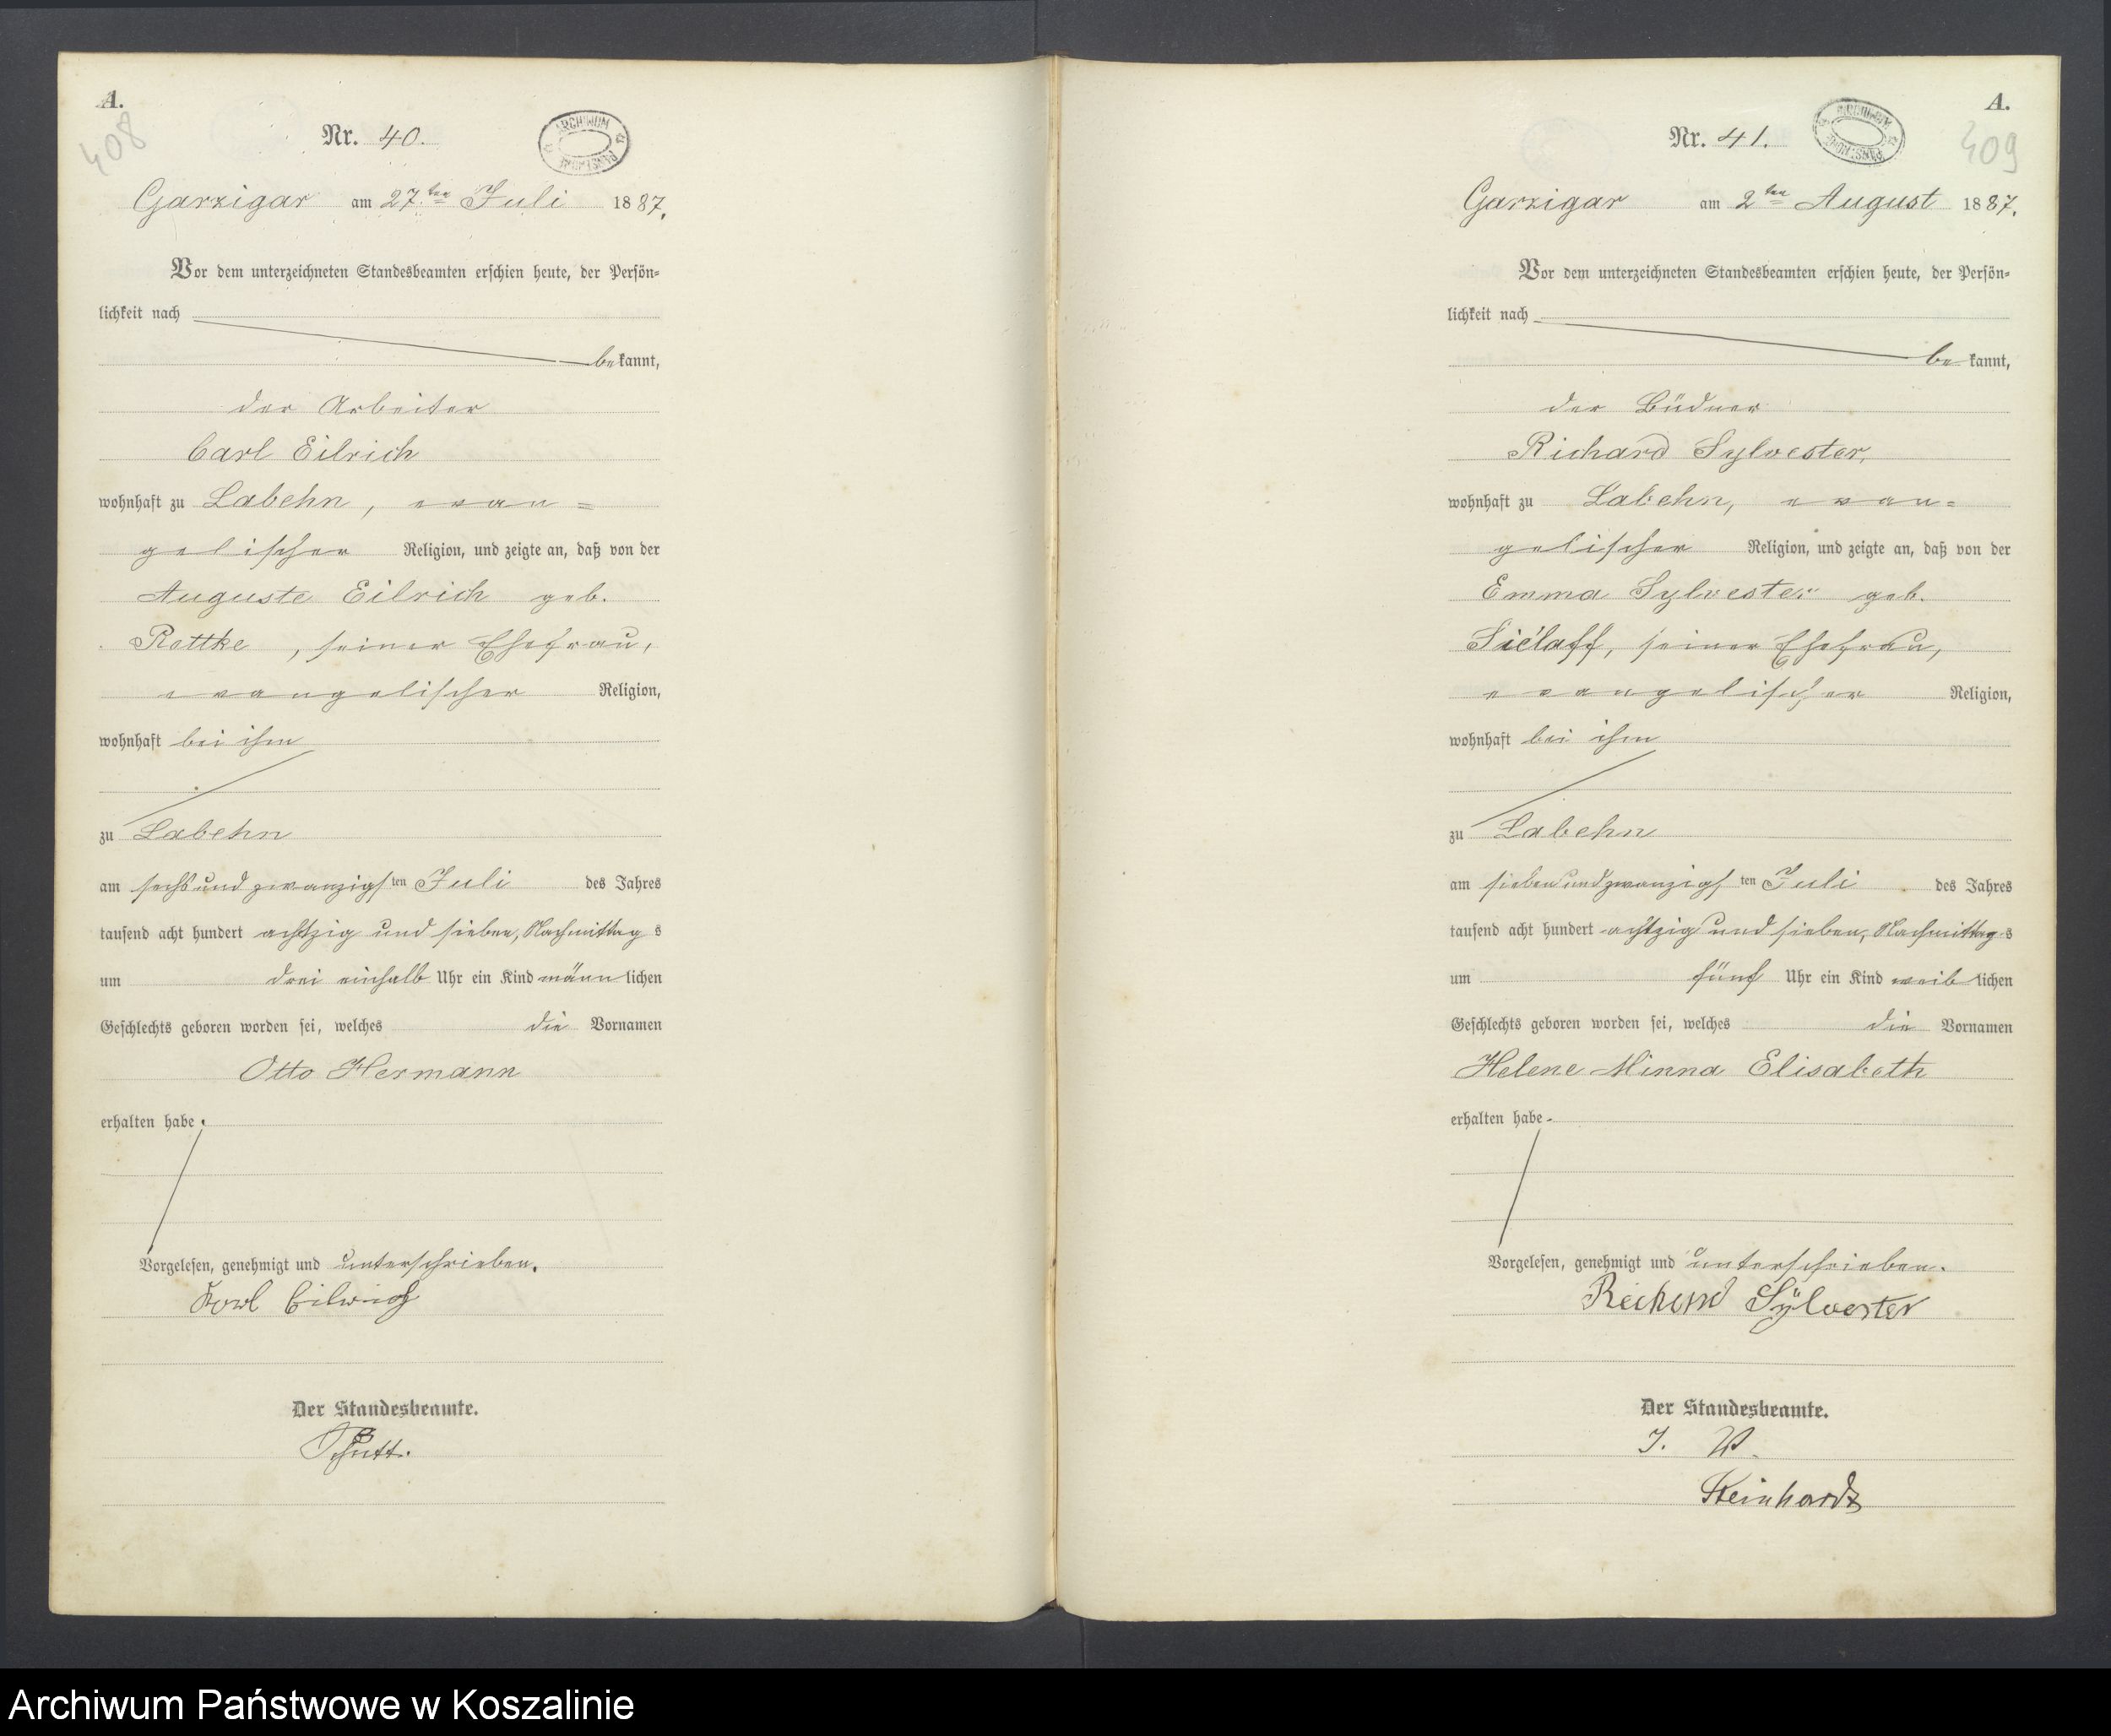 A.
408
Nr. 40.
ARCHIWUM PAŃSTWOWE
Garzigar am 27.ten Juli 1887.
Vor dem unterzeichneten Standesbeamten erschien heute, der Persön=
lichkeit nach
bekannt,
der Arbeiter
Carl Eilrich
wohnhaft zu Labehn, evan=
gelischer Religion, und zeigte an, daß von der
Auguste Eilrich geb.
Rettke, seiner Ehefrau,
evangelischer Religion,
wohnhaft bei ihm
zu Labehn
am sechs und zwanzigsten Juli des Jahres
tausend acht hundert achtzig und sieben, Nachmittags
um drei einhalb Uhr ein Kind männlichen
Geschlechts geboren worden sei, welches die Vornamen
Otto Hermann
erhalten habe.
Vorgelesen, genehmigt und unterschrieben.
Karl Eilrich
Der Standesbeamte.
A.
409
Nr. 41.
ARCHIWUM PAŃSTWOWE
Garzigar am 2ten August 1887.
Vor dem unterzeichneten Standesbeamten erschien heute, der Persön=
lichkeit nach
bekannt,
der Büdner
Richard Sylvester,
wohnhaft zu Labehn, evan=
gelischer Religion, und zeigte an, daß von der
Emma Sylvester geb.
Sielaff, seiner Ehefrau,
evangelischer Religion,
wohnhaft bei ihm
zu Labehn
am sieben und zwanzigsten Juli des Jahres
tausend acht hundert achtzig und sieben, Nachmittags
um fünf Uhr ein Kind weiblichen
Geschlechts geboren worden sei, welches die Vornamen
Helene Minna Elisabeth
erhalten habe.
Vorgelesen, genehmigt und unterschrieben.
Richard Sylvester
Der Standesbeamte.
I. V.
Steinhardt
Archiwum Państwowe w Koszalinie